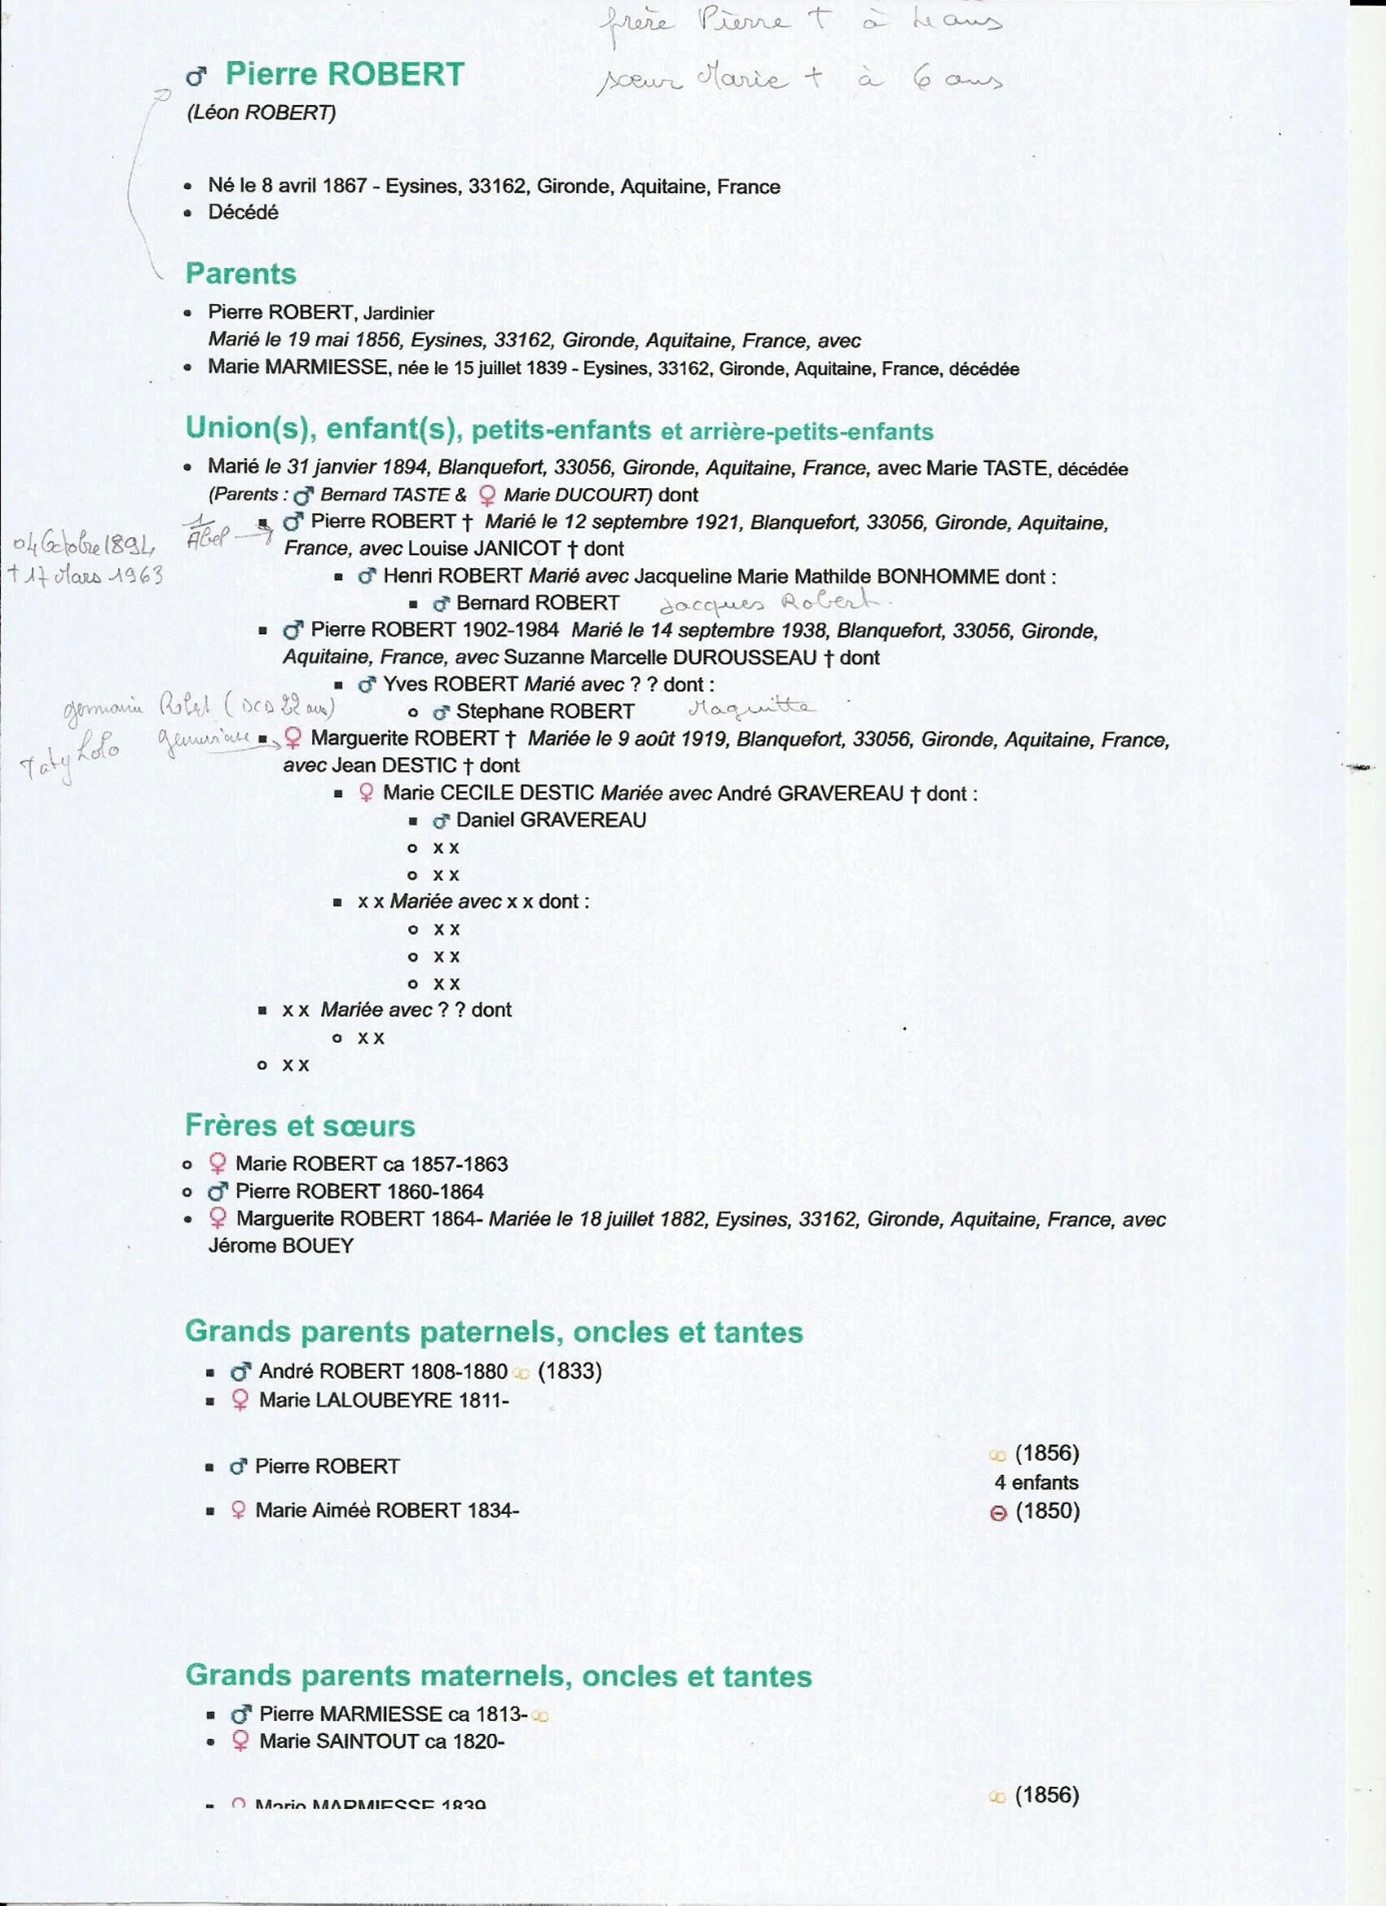 frère Pierre † à 4 ans
sœur Marie † à 6 ans
♂ Pierre ROBERT
(Léon ROBERT)
• Né le 8 avril 1867 - Eysines, 33162, Gironde, Aquitaine, France
• Décédé
Parents
• Pierre ROBERT, Jardinier
Marié le 19 mai 1856, Eysines, 33162, Gironde, Aquitaine, France, avec
• Marie MARMIESSE, née le 15 juillet 1839 - Eysines, 33162, Gironde, Aquitaine, France, décédée
Union(s), enfant(s), petits-enfants et arrière-petits-enfants
• Marié le 31 janvier 1894, Blanquefort, 33056, Gironde, Aquitaine, France, avec Marie TASTE, décédée
(Parents : ♂ Bernard TASTE & ♀ Marie DUCOURT) dont
1 Abel
▪ ♂ Pierre ROBERT † Marié le 12 septembre 1921, Blanquefort, 33056, Gironde, Aquitaine,
04 Octobre 1894
France, avec Louise JANICOT † dont
† 17 Mars 1963
▪ ♂ Henri ROBERT Marié avec Jacqueline Marie Mathilde BONHOMME dont :
▪ ♂ Bernard ROBERT Jacques Robert.
▪ ♂ Pierre ROBERT 1902-1984 Marié le 14 septembre 1938, Blanquefort, 33056, Gironde,
Aquitaine, France, avec Suzanne Marcelle DUROUSSEAU † dont
▪ ♂ Yves ROBERT Marié avec ? ? dont :
germaine Robert (DCD 22 ans)
o ♂ Stephane ROBERT Maguitte
Taty Lolo
▪ ♀ Marguerite ROBERT † Mariée le 9 août 1919, Blanquefort, 33056, Gironde, Aquitaine, France,
avec Jean DESTIC † dont
▪ ♀ Marie CECILE DESTIC Mariée avec André GRAVEREAU † dont :
▪ ♂ Daniel GRAVEREAU
o x x
o x x
▪ x x Mariée avec x x dont :
o x x
o x x
o x x
▪ x x Mariée avec ? ? dont
o x x
o x x
Frères et sœurs
o ♀ Marie ROBERT ca 1857-1863
o ♂ Pierre ROBERT 1860-1864
• ♀ Marguerite ROBERT 1864- Mariée le 18 juillet 1882, Eysines, 33162, Gironde, Aquitaine, France, avec
Jérome BOUEY
Grands parents paternels, oncles et tantes
▪ ♂ André ROBERT 1808-1880 (1833)
▪ ♀ Marie LALOUBEYRE 1811-
(1856)
▪ ♂ Pierre ROBERT
4 enfants
▪ ♀ Marie Aimée ROBERT 1834- (1850)
Grands parents maternels, oncles et tantes
▪ ♂ Pierre MARMIESSE ca 1813-
• ♀ Marie SAINTOUT ca 1820-
(1856)
▪ ♀ Marie MARMIESSE 1839